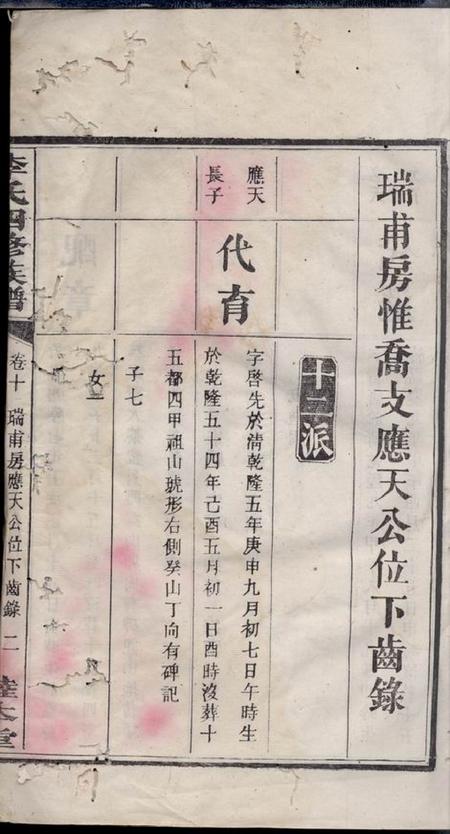 瑞甫房惟喬支應天公位下齒錄
十二派
應天
長子
代育
字啓先於清乾隆五年庚申九月初七日午時生
於乾隆五十四年己酉五月初一日酉時沒葬十
五都四甲祖山琥形右側癸山丁向有碑記
子七
女一
李氏四修族譜
卷十
瑞甫房應天公位下齒錄
二